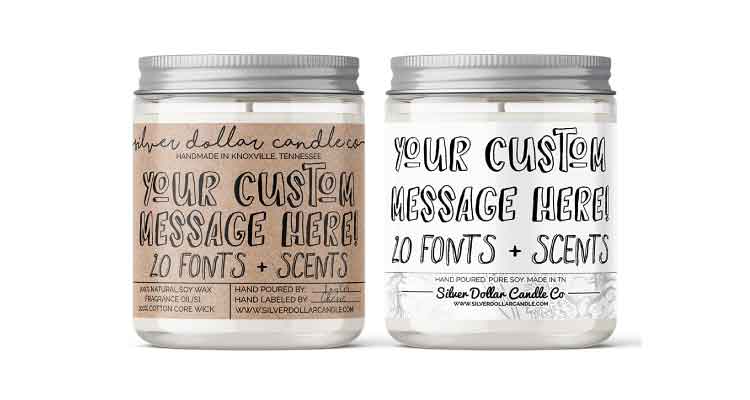 silver dollar candle co
HANDMADE IN KNOXVILLE, TENNESSEE
YOUR CUSTOM
MESSAGE HERE!
20 FONTS + SCENTS
100% NATURAL SOY WAX
FRAGRANCE OIL(S)
100% COTTON CORE WICK
HAND POURED BY:
HAND LABELED BY:
WWW.SILVERDOLLARCANDLE.COM
YOUR CUSTOM
MESSAGE HERE!
20 FONTS + SCENTS
HAND POURED. PURE SOY. MADE IN TN
Silver Dollar Candle Co
WWW.SILVERDOLLARCANDLE.COM